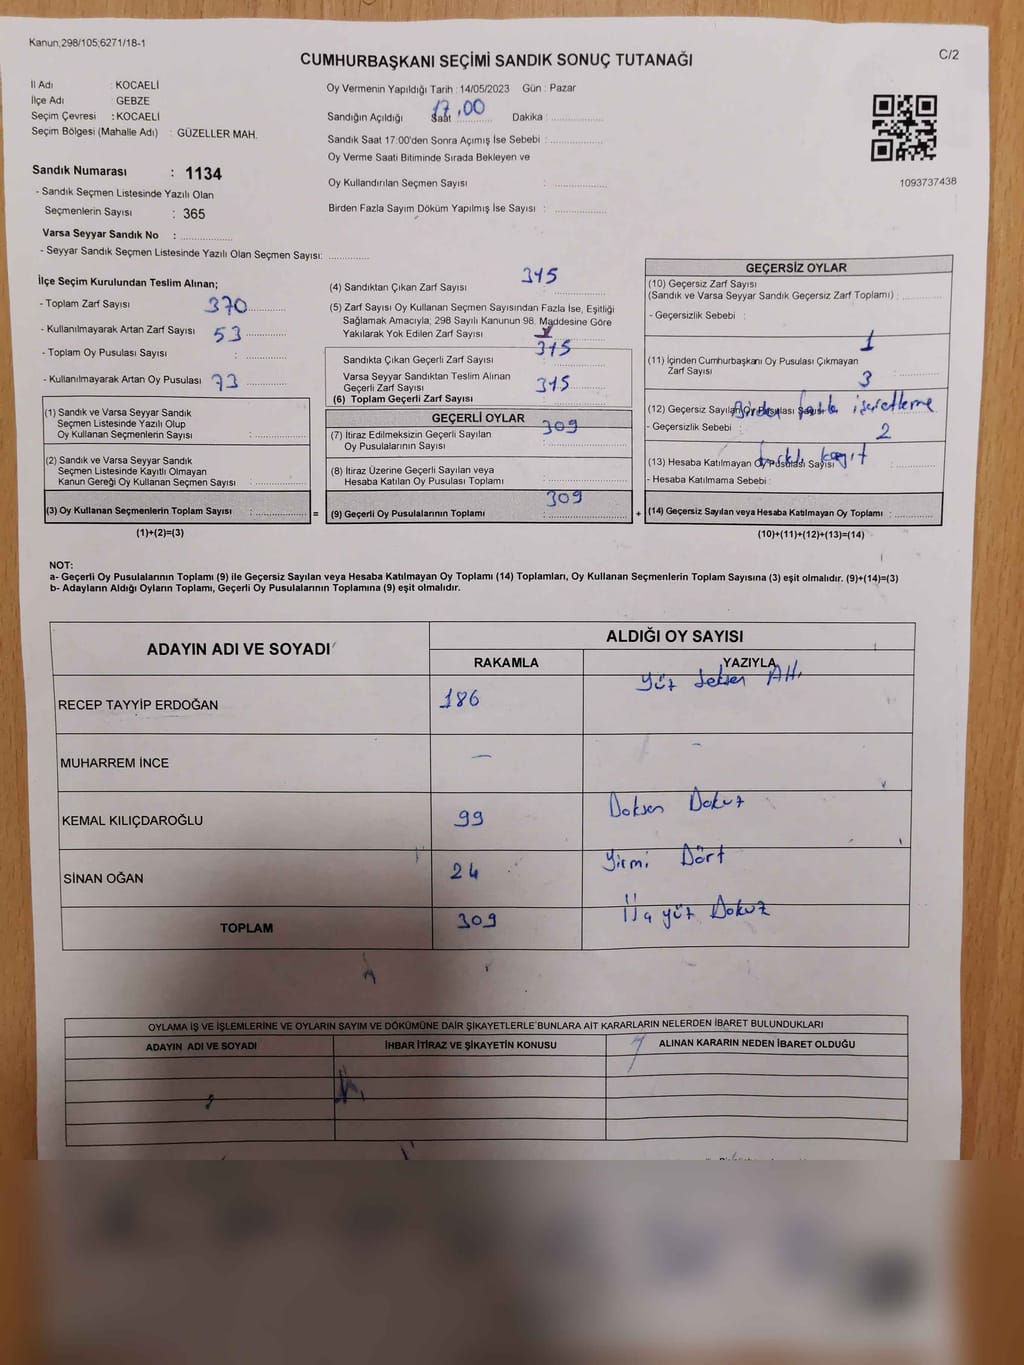 Kanun;298/105;6271/18-1
C/2
CUMHURBAŞKANI SEÇİMİ SANDIK SONUÇ TUTANAĞI
İl Adı : KOCAELİ
İlçe Adı : GEBZE
Seçim Çevresi : KOCAELİ
Seçim Bölgesi (Mahalle Adı) : GÜZELLER MAH.
Sandık Numarası : 1134
- Sandık Seçmen Listesinde Yazılı Olan
Seçmenlerin Sayısı : 365
Varsa Seyyar Sandık No :
- Seyyar Sandık Seçmen Listesinde Yazılı Olan Seçmen Sayısı:
Oy Vermenin Yapıldığı Tarih : 14/05/2023 Gün : Pazar
Sandığın Açıldığı Saat 17.00 Dakika :
Sandık Saat 17:00'den Sonra Açımış İse Sebebi :
Oy Verme Saati Bitiminde Sırada Bekleyen ve
Oy Kullandırılan Seçmen Sayısı :
Birden Fazla Sayım Döküm Yapılmış İse Sayısı :
1093737438
İlçe Seçim Kurulundan Teslim Alınan;
- Toplam Zarf Sayısı 370
- Kullanılmayarak Artan Zarf Sayısı 53
- Toplam Oy Pusulası Sayısı :
- Kullanılmayarak Artan Oy Pusulası 73
(1) Sandık ve Varsa Seyyar Sandık
Seçmen Listesinde Yazılı Olup
Oy Kullanan Seçmenlerin Sayısı :
(2) Sandık ve Varsa Seyyar Sandık
Seçmen Listesinde Kayıtlı Olmayan
Kanun Gereği Oy Kullanan Seçmen Sayısı :
(3) Oy Kullanan Seçmenlerin Toplam Sayısı :
(1)+(2)=(3)
=
(4) Sandıktan Çıkan Zarf Sayısı 315
(5) Zarf Sayısı Oy Kullanan Seçmen Sayısından Fazla İse, Eşitliği
Sağlamak Amacıyla; 298 Sayılı Kanunun 98. Maddesine Göre
Yakılarak Yok Edilen Zarf Sayısı
Sandıkta Çıkan Geçerli Zarf Sayısı 315
Varsa Seyyar Sandıktan Teslim Alınan
Geçerli Zarf Sayısı 315
(6) Toplam Geçerli Zarf Sayısı
GEÇERLİ OYLAR
(7) İtiraz Edilmeksizin Geçerli Sayılan 309
Oy Pusulalarının Sayısı
(8) İtiraz Üzerine Geçerli Sayılan veya
Hesaba Katılan Oy Pusulası Toplamı
309
(9) Geçerli Oy Pusulalarının Toplamı
+
GEÇERSİZ OYLAR
(10) Geçersiz Zarf Sayısı
(Sandık ve Varsa Seyyar Sandık Geçersiz Zarf Toplamı) :
- Geçersizlik Sebebi :
1
(11) İçinden Cumhurbaşkanı Oy Pusulası Çıkmayan
Zarf Sayısı 3
(12) Geçersiz Sayılan Oy Pusulası Sayısı Birden fazla işaretleme
- Geçersizlik Sebebi : 2
(13) Hesaba Katılmayan Oy Pusulası Sayısı farklı kağıt
- Hesaba Katılmama Sebebi
(14) Geçersiz Sayılan veya Hesaba Katılmayan Oy Toplamı :
(10)+(11)+(12)+(13)=(14)
NOT:
a- Geçerli Oy Pusulalarının Toplamı (9) ile Geçersiz Sayılan veya Hesaba Katılmayan Oy Toplamı (14) Toplamları, Oy Kullanan Seçmenlerin Toplam Sayısına (3) eşit olmalıdır. (9)+(14)=(3)
b- Adayların Aldığı Oyların Toplamı, Geçerli Oy Pusulalarının Toplamına (9) eşit olmalıdır.
ADAYIN ADI VE SOYADI
ALDIĞI OY SAYISI
RAKAMLA YAZIYLA
RECEP TAYYİP ERDOĞAN 186 Yüz Seksen Altı
MUHARREM İNCE — -
KEMAL KILIÇDAROĞLU 99 Doksan Dokuz
SİNAN OĞAN 24 Yirmi Dört
TOPLAM 309 Üç yüz Dokuz
OYLAMA İŞ VE İŞLEMLERİNE VE OYLARIN SAYIM VE DÖKÜMÜNE DAİR ŞİKAYETLERLE BUNLARA AİT KARARLARIN NELERDEN İBARET BULUNDUKLARI
ADAYIN ADI VE SOYADI İHBAR İTİRAZ VE ŞİKAYETİN KONUSU ALINAN KARARIN NEDEN İBARET OLDUĞU